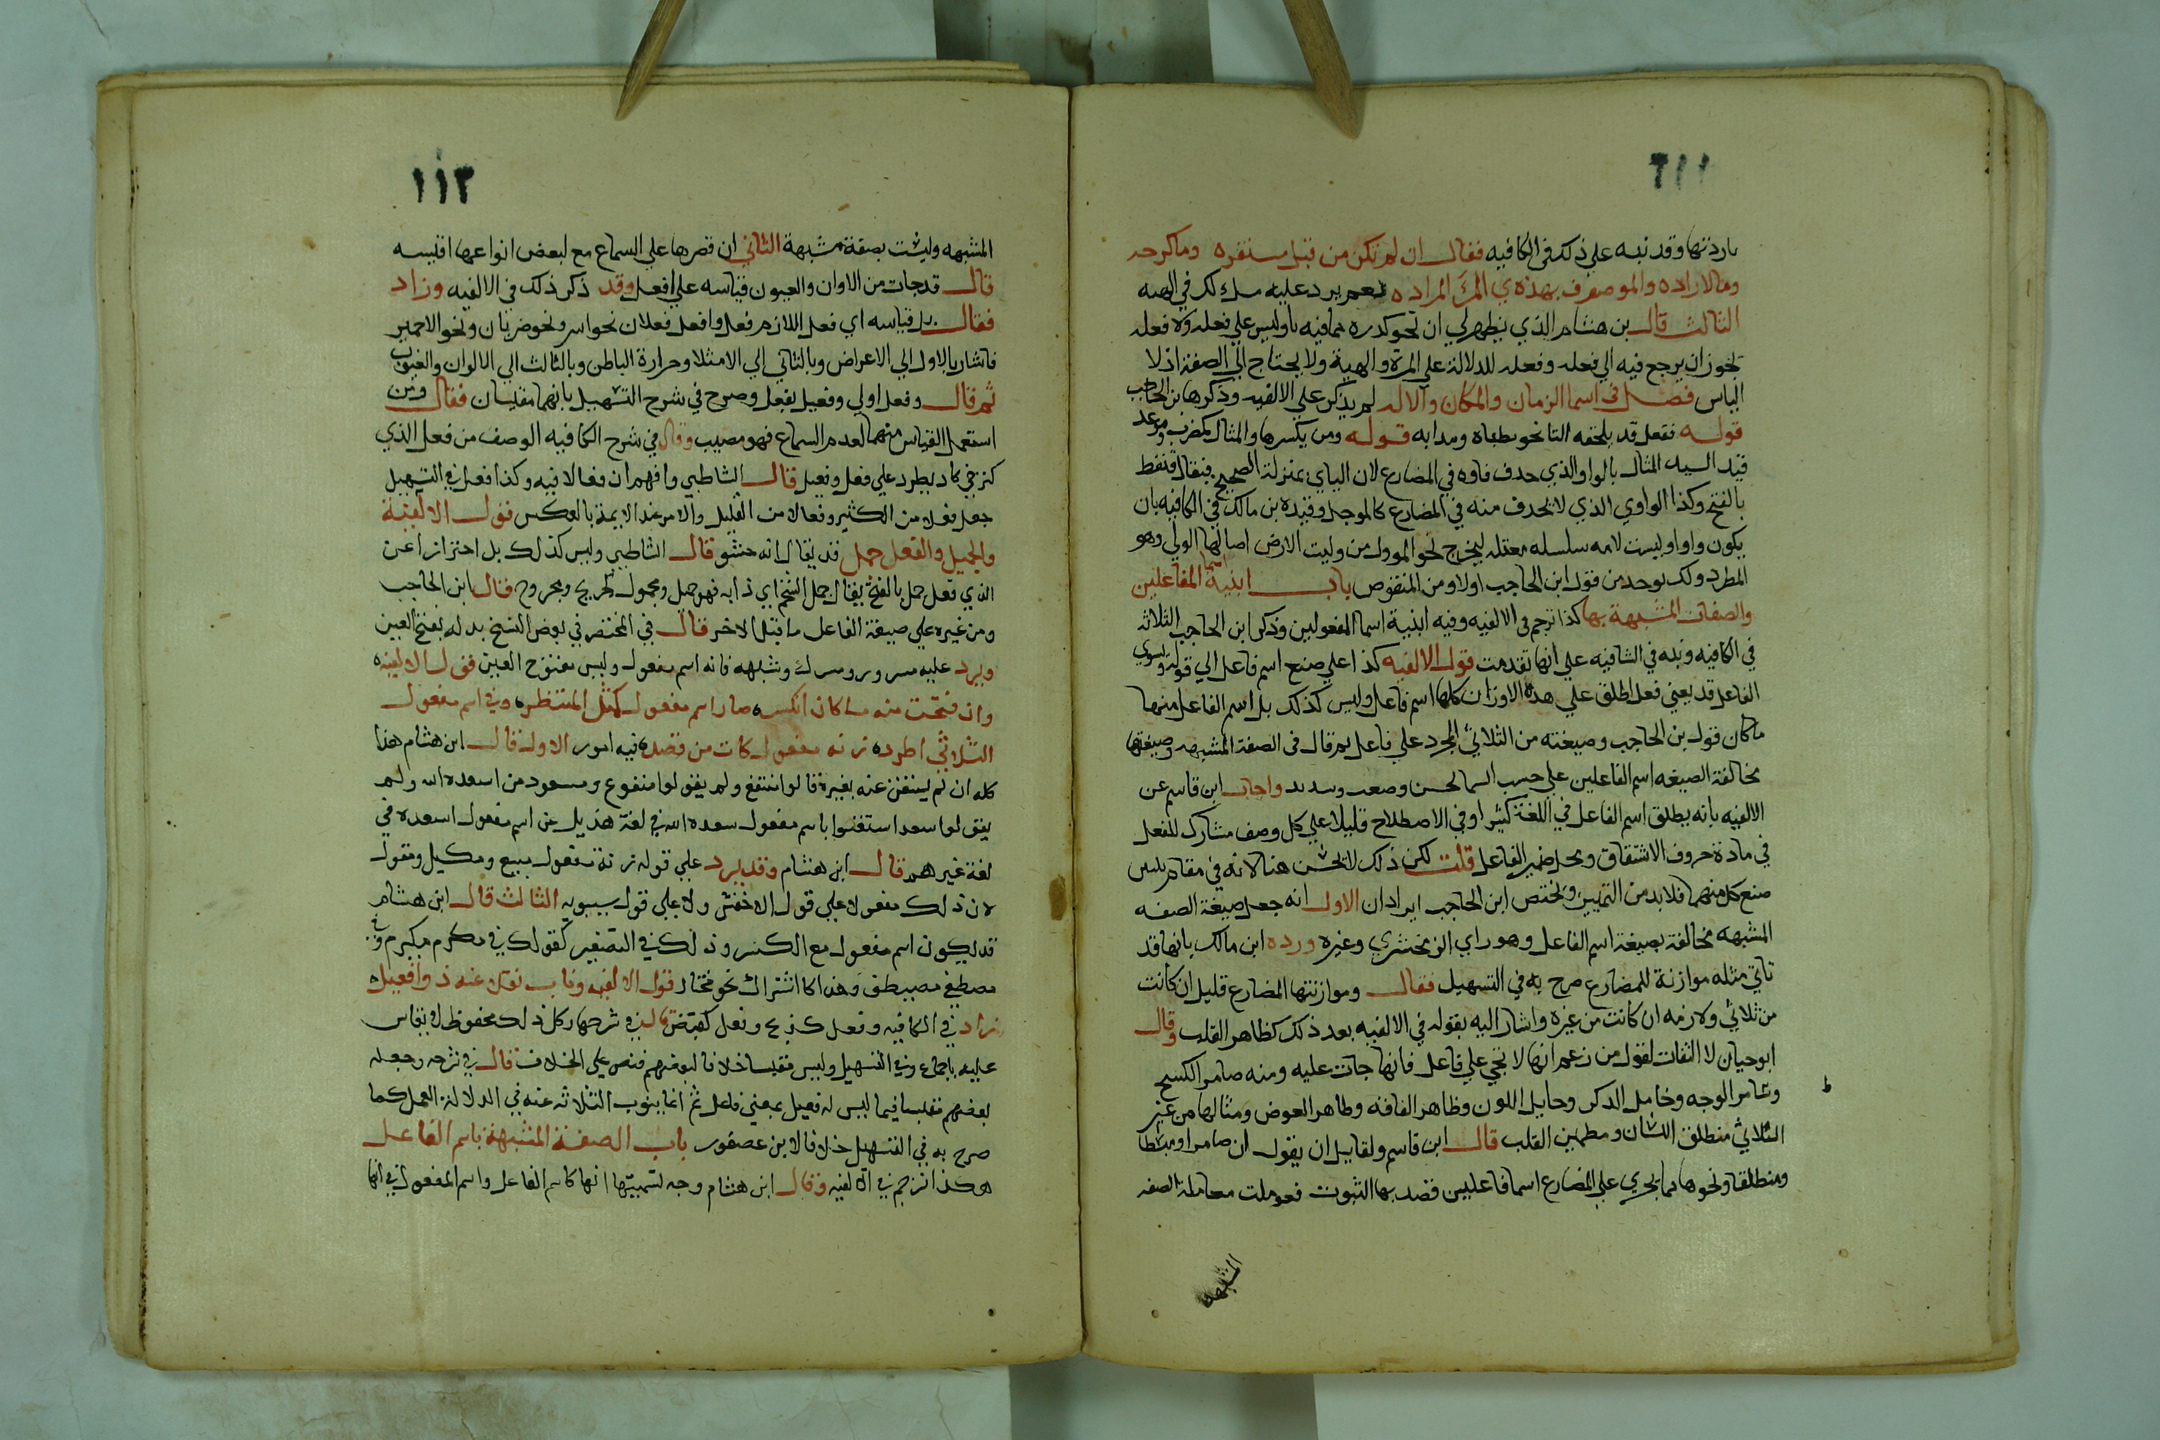 ١١٢
باردتها وقد نبه على ذلك في الكافيه فقال ان لم تكن من قبل مستقره وما كرحمه
والاراده والموصوف بهذه ذي المرة المراده نعم يرد عليه ذلك في الهيه
الثالث قال بن هشام الذي يظهر لي ان نحو كدره مما فيه يا وليس على فعله ولا فعله
يجوز ان يرجع فيه الي فعله وفعله للدلالة على المرة والهية ولا يحتاج الى الصفة اذ لا
الباس فصل في اسما الزمان والمكان والاله لم يذكر علي الالفيه وذكرها بن الحاجب
قوله ففعل قد يلحقه التا نحو مظباة ومدابه قوله ومن يكسرها والمثال كمضرب وموعد
قيد السيه المثال بالواو الذي حدف فاوه في المضارع لان الياي بمنزلة الصحيح فيقال
بالفتح وكذا الواوي الذي لا يحدف منه في المضارع كالموجل وقيده بن مالك في الكافيه بان
يكون واوا وليست لامه سلسله معتله ليخرج نحو المولى من وليت الارض اصابها الولي وهو
المطر ولك يوخد من قول ابن الحاجب اولا ومن المنقوص باب ابنية اسما الفاعلين
والصفات المشبهة بها كذا ترجم في الالفيه وفيه ابنية اسما المفعولين وذكر ابن الحاجب الثلاثه
في الكافيه ونبه في الشافيه على انها تقدمت قول الالفيه كذا علي صنع اسم فاعل الي قوله وسوي
الفاعل قد يعني فعل اطلق علي هده الاوزان كلها اسم فاعل وليس كذلك بل اسم الفاعل منها
ما كان قول بن الحاجب وصيغته من الثلاثي المجرد علي فاعل ثم قال في الصفة المشبهه وصيغتها
مخالفة الصيغه اسم الفاعلين علي حسب السما كحسن وصعب وسديد واجاب ابن قاسم عن
الالفيه بانه يطلق اسم الفاعل في اللغة كثيرا وفي الاصطلاح قليلا علي كل وصف مشارك للفعل
في مادة حروف الاشتقاق وتحمل ضمير الفاعل قلت لكن ذلك لا يحسن هنا لانه في مقام
صنع كل منهما فلا بد من التميين ويختص ابن الحاجب ايرادان الاول انه جعل صيغة الصفه
المشبهه مخالفة بصيغة اسم الفاعل وهو راي الزمخشري وغيره ورده ابن مالك بانها قد
تاتي مثله موازنة للمضارع صرح به في التسهيل فقال وموازنتها المضارع قليل ان كانت
من ثلاثي ولازمه ان كانت من غيره واشار اليه بقوله في الالفيه بعد ذلك كظاهر القلب وقال
ابو حيان لا التفات لقول من زعم انها لا تجي علي فاعل فانها جات عليه ومنه ضامر الكسح
وشامر الوجه وخامل الذكر وحايل اللون وظاهر الفاقه وطاهر العوض ومثالها من غير
الثلاثي منطلق اللسان ومطمين القلب قال ابن قاسم ولقايل ان يقول ان ضامرا ومنبسطا
ومنطلقا ونحوها مما يجري علي المضارع اسما فاعلين قصد بها الثبوت فعوملت معاملة الصفه
المشبهه
١١٣
المشبهه وليست بصفة مشبهة الثاني ان قصرها علي السماع مع لبعض انواعها اقيسه
قال قد جات من الالوان والعيون قياسه علي افعل وقد ذكر ذلك في الالفيه وزاد
فقال بل قياسه اي فعل اللازم فعل وافعل فعلان نحو اسر ونحو ضريان ونحو الاحمر
فاشار بالاول الي الاعراض وبالثاني الي الامتلا وحرارة الباطن وبالثالث الي الالوان والعيوب
ثم قال وفعل اولي وفعيل بفعل وصرح في شرح التسهيل بانهما مقيسان فقال ومن
استعمل القياس منهما لعدم السماع فهو مصيب وقال في شرح الكافيه الوصف من فعل الذي
كثر مجي كاد يطرد علي فعل وفعيل قال الشاطبي وافهم ان فعالا فيه وكذا افعل في التسهيل
جعل فعلا من الكثير وفعالا من القليل والامر عند الايمة بالعكس قول الالفية
والجميل والفعل جمل قد يقال انه حشو قال الشاطبي وليس كذلك بل احترازا عن
الذي فعل جمل بالفتح يقال جمل الشحم اي ذابه فهو جمل ومجمول كجريح ومجروح قال ابن الحاجب
ومن غيره علي صيغة الفاعل ما قبل الاخر قال في المختصر في بعض النسخ بدله بفتح العين
ويرد عليه مسرور ومسرك وشبهه فانه اسم مفعول وليس مفتوح العين قول الالفيه
وان فتحت منه ما كان انكسر صار اسم مفعول كمثل المنتظره وفي اسم مفعول
الثلاثي اطرده زنة مفعول كات من قصده فيه امور الاول قال ابن هشام هذا
كله ان لم يستغن عنه بغيره قالوا منتفع ولم يقولوا منفوع ومسعود من اسعده الله ولم
يقولوا سعد استغنوا باسم مفعول سعده الله في لغة هذيل عن اسم مفعول اسعده في
لغة غيرهم قال ابن هشام وقد يرد علي قوله زنة مفعول مبيع ومكيل ومقول
لان ذلك مفعولا علي قول الاخفش ولا علي قول سيبويه الثالث قال ابن هشام
قد يكون اسم مفعول مع الكسر وذلك في التصغير كقولك في مكرم مكيرم وفي
مصطفي مصيطف وهذا كالاشتراك نحو مختار قول الالفيه وناب نقلا عنه ذو افعيل
زاد في الكافيه وفعل كذبح وفعل كقبض قال في شرحها وكل ذلك محفوظ لا يقاس
عليه باجماع وفي التسهيل وليس مقيسا خلافا لبعضهم فنص علي الخلاف قال في شرحه وجعله
بعضهم مقيسا فيما ليس له فعيل بمعني فاعل ثم انما ينوب الثلاثة عنه في الدلالة لا العمل كما
صرح به في التسهيل خلافا لابن عصفور باب الصفة المشبهة باسم الفاعل
هكذا ترجم في الالفيه وقال ابن هشام وجه تسميتها انها كاسم الفاعل واسم المفعول في انها